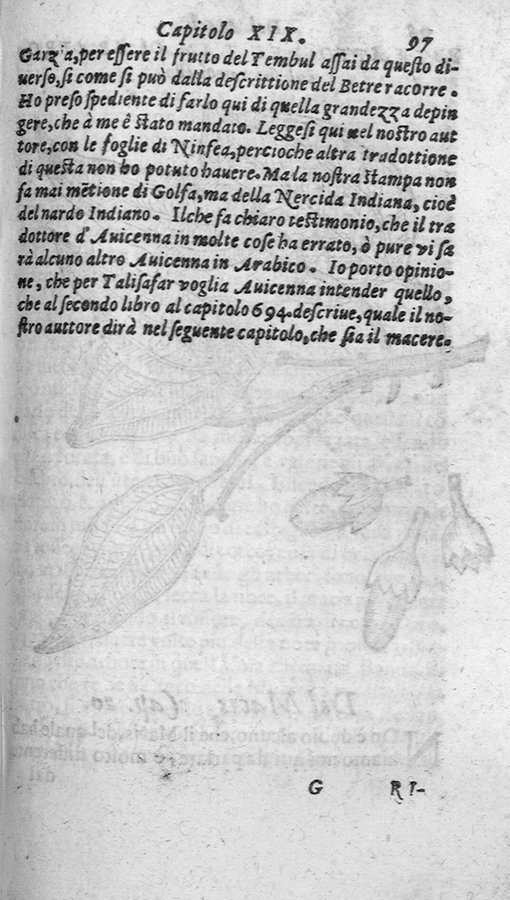 Capitolo XIX. 97
Garzia, per essere il frutto del Tembul assai da questo di-
uerso, si come si può dalla descrittione del Betre racorre.
Ho preso spediente di farlo qui di quella grandezza depin
gere, che à me è stato mandato. Leggesi qui nel nostro aut
tore, con le foglie di Ninfea, percioche altra tradottione
di questa non ho potuto hauere. Ma la nostra stampa non
fa mai mētione di Golfa, ma della Nercida Indiana, cioè
del nardo Indiano. Ilche fa chiaro testimonio, che il tra
dottore d'Auicenna in molte cose ha errato, ò pure vi sa
rà alcuno altro Auicenna in Arabico. Io porto opinio-
ne, che per Talisafar voglia Auicenna intender quello,
che al secondo libro al capitolo 694. descriue, quale il no-
stro auttore dirà nel seguente capitolo, che sia il macere.
Del Macis, Cap. 20
G RI-